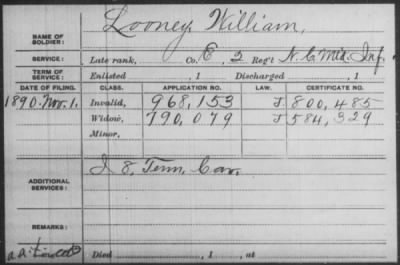 NAME OF SOLDIER: Looney, William,
SERVICE: Late rank, Co. E, 2 Reg't N.C. Mtd. Inf.
TERM OF SERVICE: Enlisted , 1 Discharged , 1
DATE OF FILING. CLASS. APPLICATION NO. LAW. CERTIFICATE NO.
1890. Nov. 1. Invalid, 968,153 J 800,485
Widow, 790,079 J 584,329
Minor,
ADDITIONAL SERVICES: I 8, Tenn. Cav.
REMARKS:
Died , 1 , at